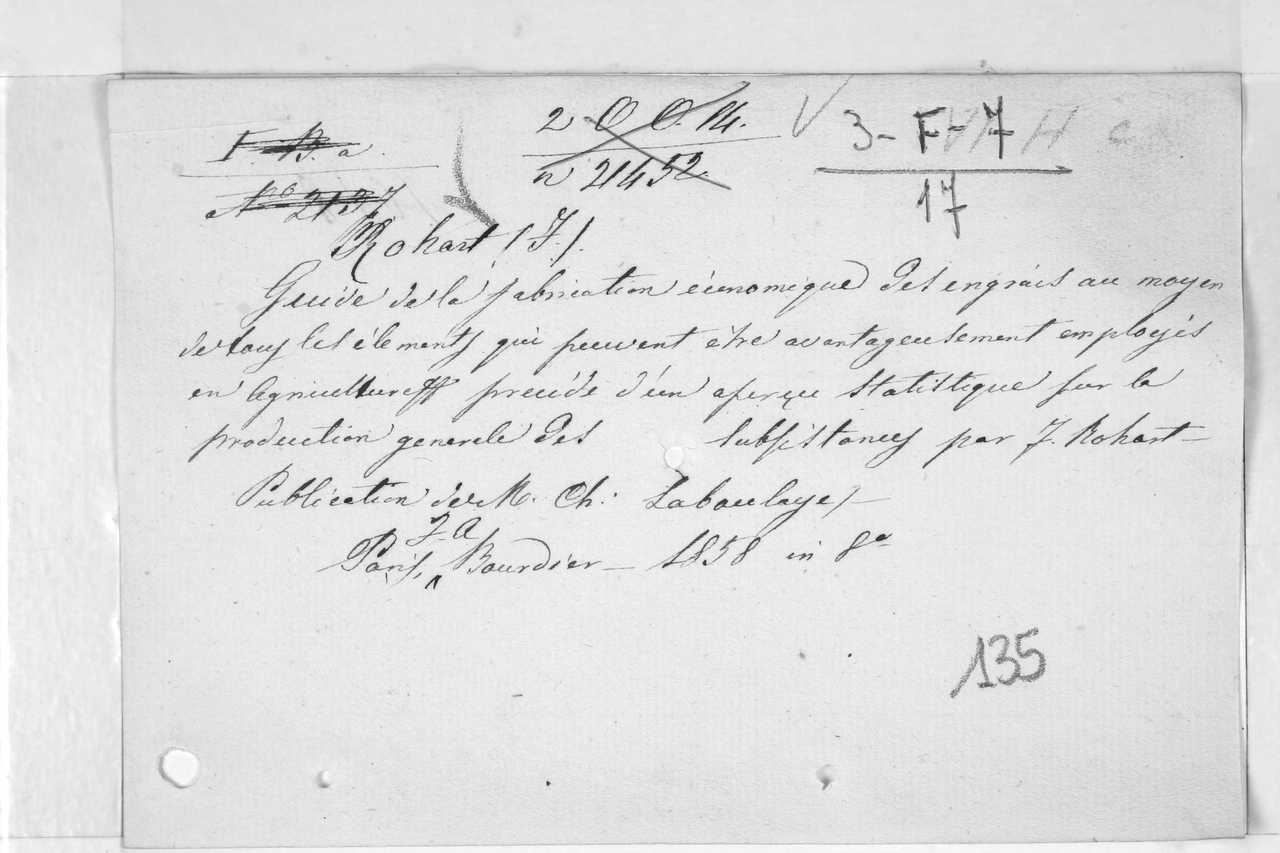 I B. a.
Nº 2137
2 O O. 14.
n 21452.
3-F-7
17
Rohart (F.)
Guide de la fabrication économique des engrais au moyen
de tous les élements qui peuvent être avantageusement employés
en Agriculture precédé d'un aperçu statistique sur la
production generale des subsistances par F. Rohart—
Publication de M. Ch. Laboulaye—
Paris, J. A Bourdier— 1858 in 8º
135